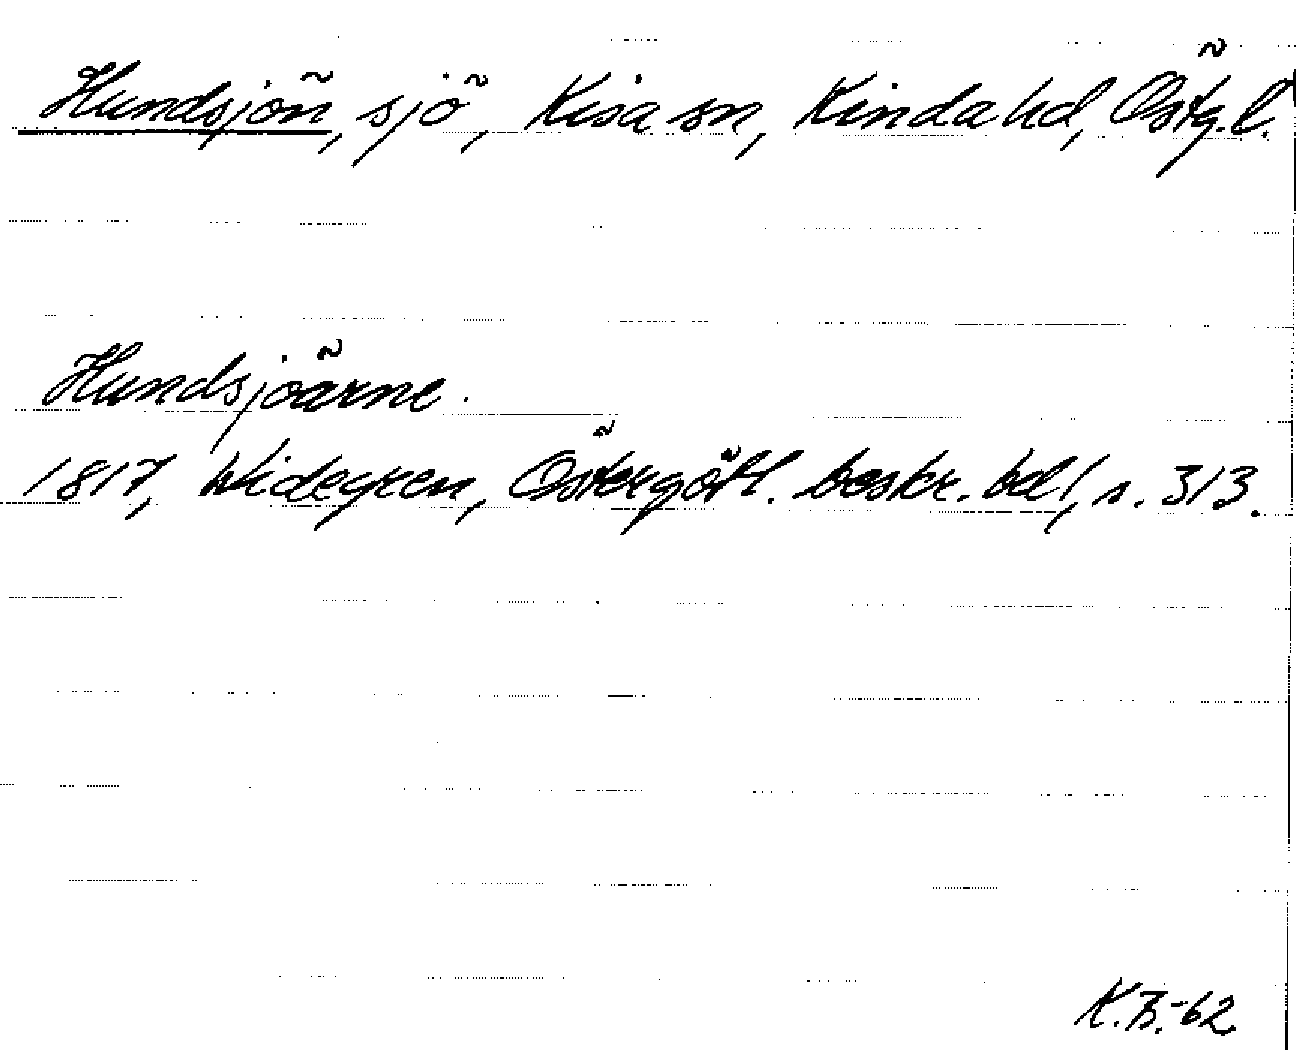 Hundsjön, sjö, Kisa sn, Kinda hd, Östg.l.
Hundsjöarne.
1817, Widegren, Östergötl. beskr. bd 1, s. 313.
K.B.-62